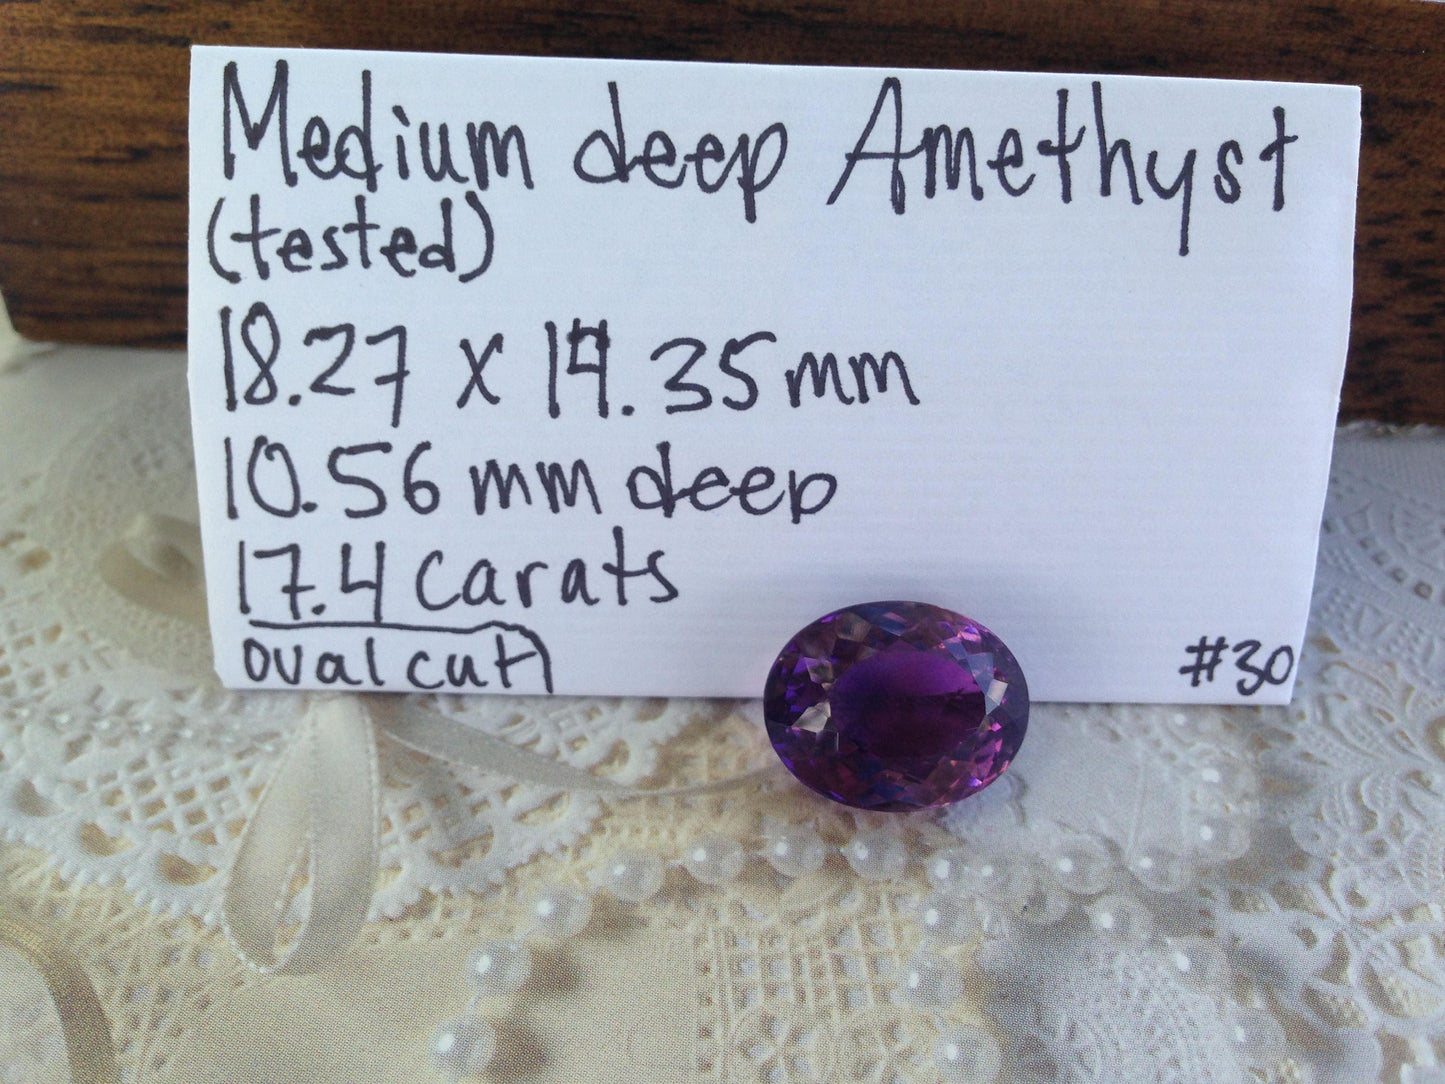 Medium deep Amethyst
(tested)
18.27 x 14.35mm
10.56 mm deep
17.4 carats
oval cut
#30